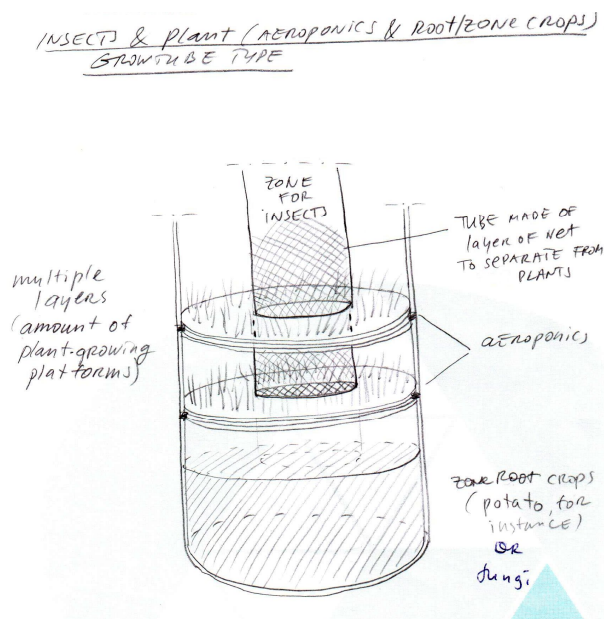 INSECTS & PLANT (AEROPONICS & ROOT/ZONE CROPS)
GROWTUBE TYPE
ZONE
FOR
INSECTS
TUBE MADE OF
layer OF Net
TO SEPARATE FROM
PLANTS
multiple
layers
(amount of
plant-growing
platforms)
aeroponics
ZONE ROOT CROPS
(potato, for
instance)
OR
fungi